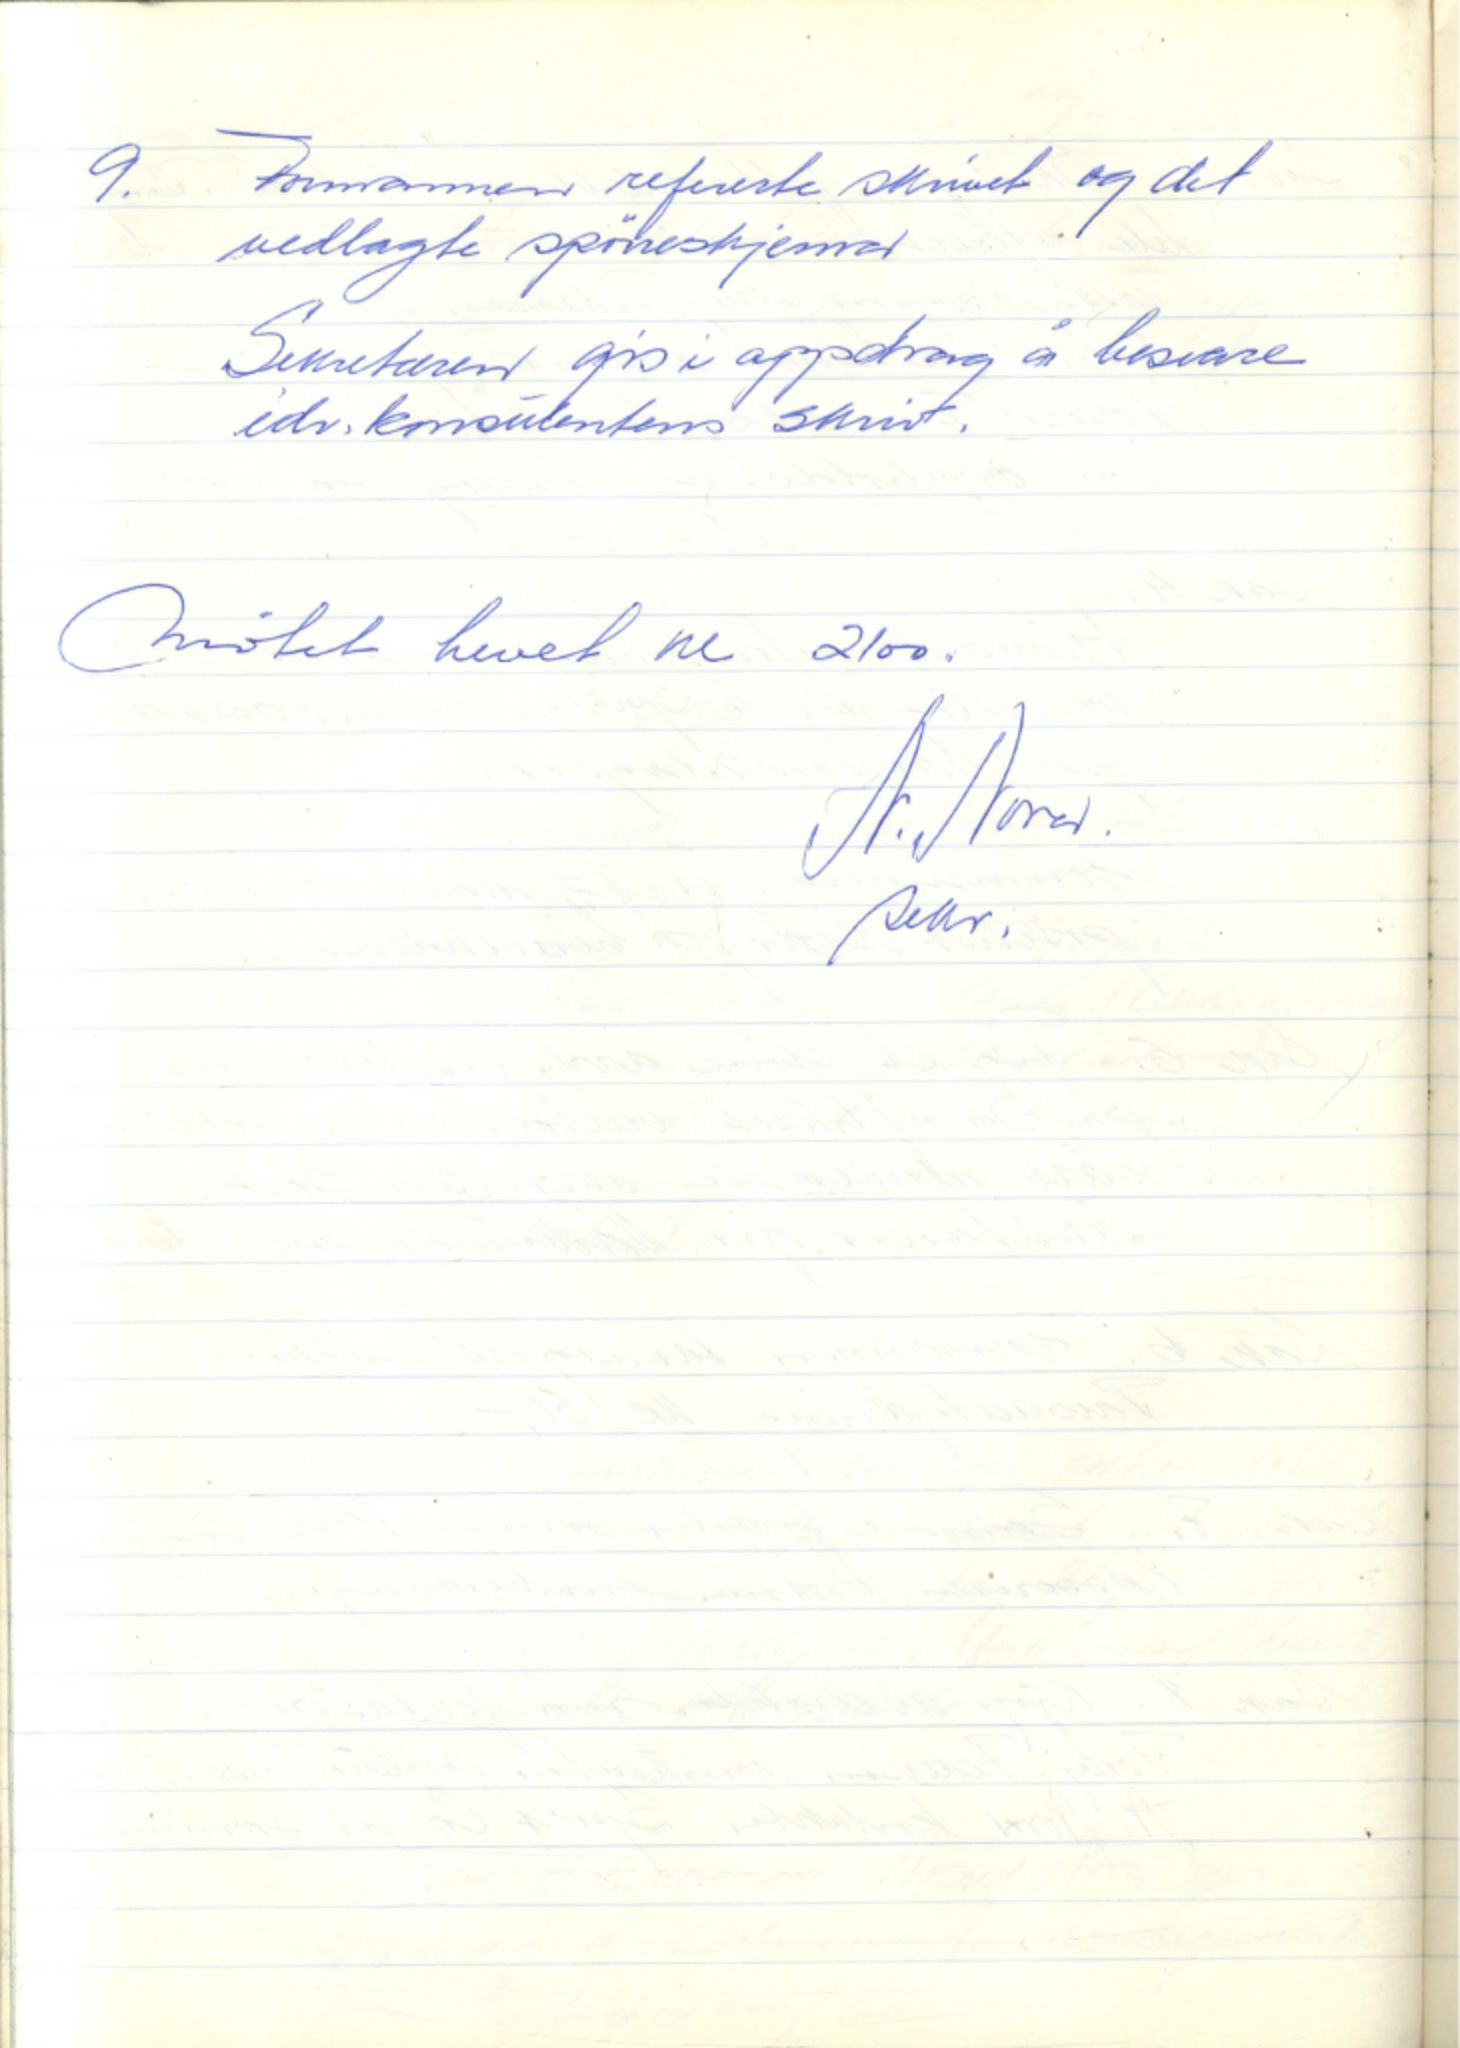 9. Formannen refererte skrivet og det
vedlagte spörreskjema
Sekretæren gis i oppdrag å besvare
idr. konsulentens skriv.
Mötet hevet kl 2100.
sekr.